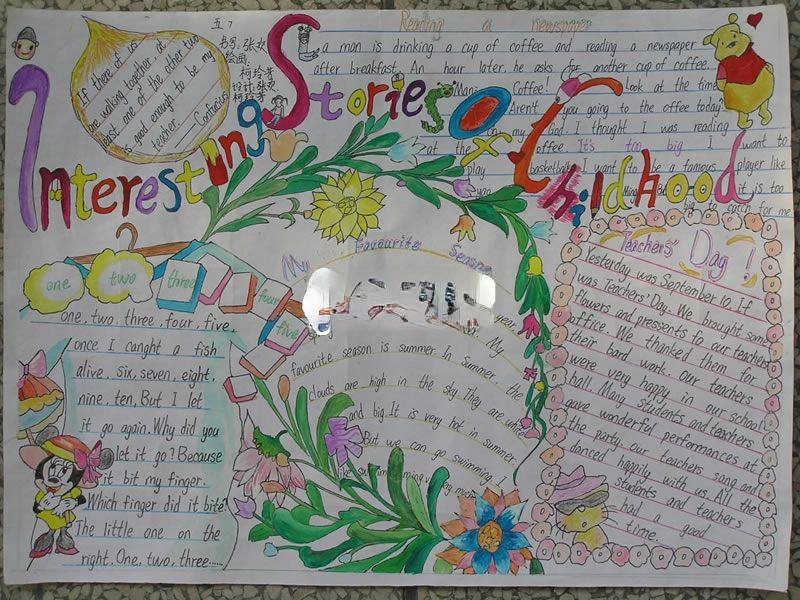 Interesting Stories Of Childhood
五7
书写:张
绘画:
柯玲芳
设计:张
柯玲芳
If there of us
are walking together at
least one of the other two
is good enough to be my
teacher ——Confucius
Reading a newspaper
a man is drinking a cup of coffee and reading a newspaper
after breakfast. An hour later, he asks for another cup of coffee.
Coffee! Look at the time
Aren't you going to the offee today?
my God. I thought I was reading
at the
offee. It's too big I want to
play basketball. I want to be a famous player like
Ming. But it is too
big to catch for me
one two three four five
one, two, three, four, five,
once I canght a fish
alive. six, seven, eight,
nine, ten, But I let
it go again. Why did you
let it go? Because
it bit my finger.
Which finger did it bite?
The little one on the
right. One, two, three......
My Favourite Season
year,
My
favourite season is summer. In Summer, the
clouds are high in the sky. They are white
and big. It is very hot in summer.
But we can go swimming I
like swimming very much
Teachers' Day!
Yesterday was September 10. If
was Teachers' Day. We brought some
flowers and pressents to our teachers
office. We thanked them for
their bard work. our teachers
were very happy in our school
hall. Many students and teachers
gave wonderful performances at
the party. our teachers sang and
danced happily with us. All the
students and teachers
had a good
time.